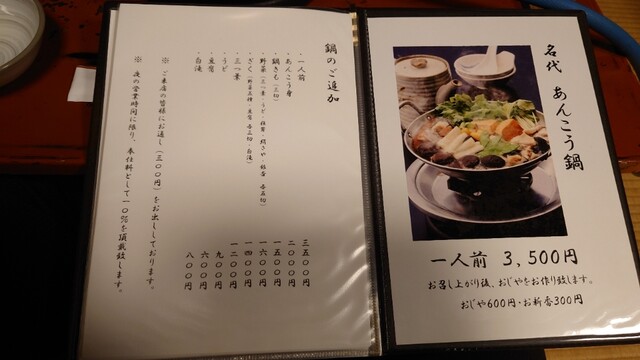 名代 あんこう鍋
一人前 3,500円
お召し上がり後、おじやをお作り致します。
おじや600円・お新香300円
鍋のご追加
・一人前 三五〇〇円
・あんこう身 二〇〇〇円
・鍋きも(三切) 一五〇〇円
・野菜(三つ葉・うど・椎茸・焼き・銀杏 各五切) 一六〇〇円
・ざく(野菜三種・豆腐 各二切・白滝) 一四〇〇円
・三つ葉 一二〇〇円
・うど 九〇〇円
・豆腐 六〇〇円
・白滝 八〇〇円
※ ご来店の皆様にお通し(三〇〇円)をお出ししております。
※ 夜の営業時間に限り、奉仕料として一〇%を頂戴致します。